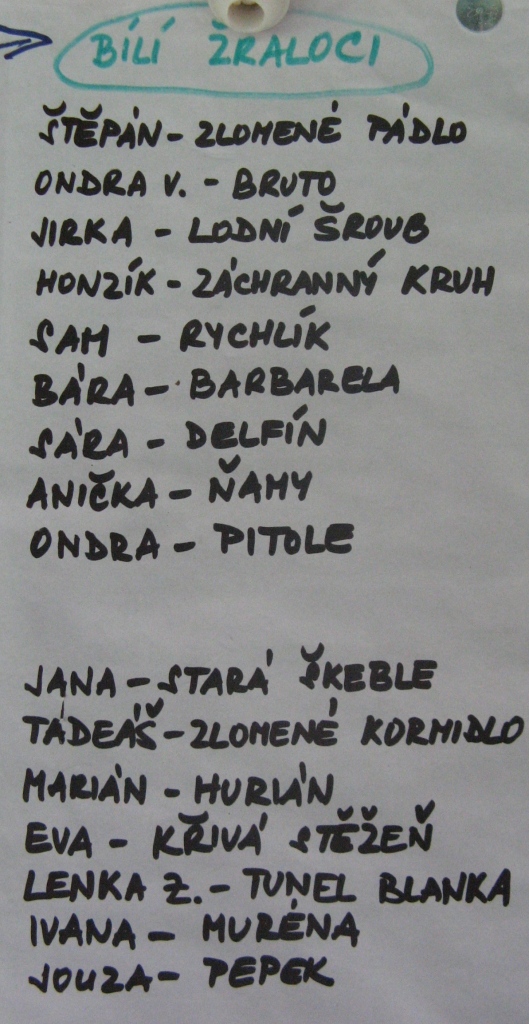 BÍLÍ ŽRALOCI
ŠTĚPÁN - ZLOMENÉ PÁDLO
ONDRA V. - BRUTO
JIRKA - LODNÍ ŠROUB
HONZÍK - ZÁCHRANNÝ KRUH
SAM - RYCHLÍK
BÁRA - BARBARELA
SÁRA - DELFÍN
ANIČKA - ŇAMY
ONDRA - PITOLE
JANA - STARÁ ŠKEBLE
TÁDEÁŠ - ZLOMENÉ KORMIDLO
MARIÁN - HURIÁN
EVA - KŘIVÁ STĚŽEŇ
LENKA Z. - TUNEL BLANKA
IVANA - MURÉNA
JOUZA - PEPEK